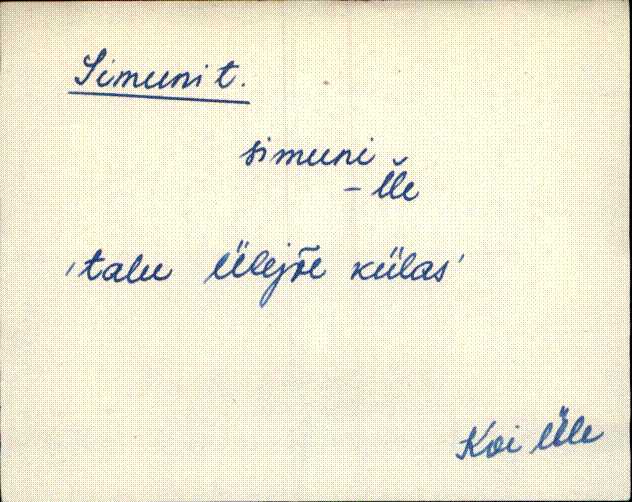 Simuni t.
simuni
– l̆le
'talu Ülejõe külas'
Koi Üle